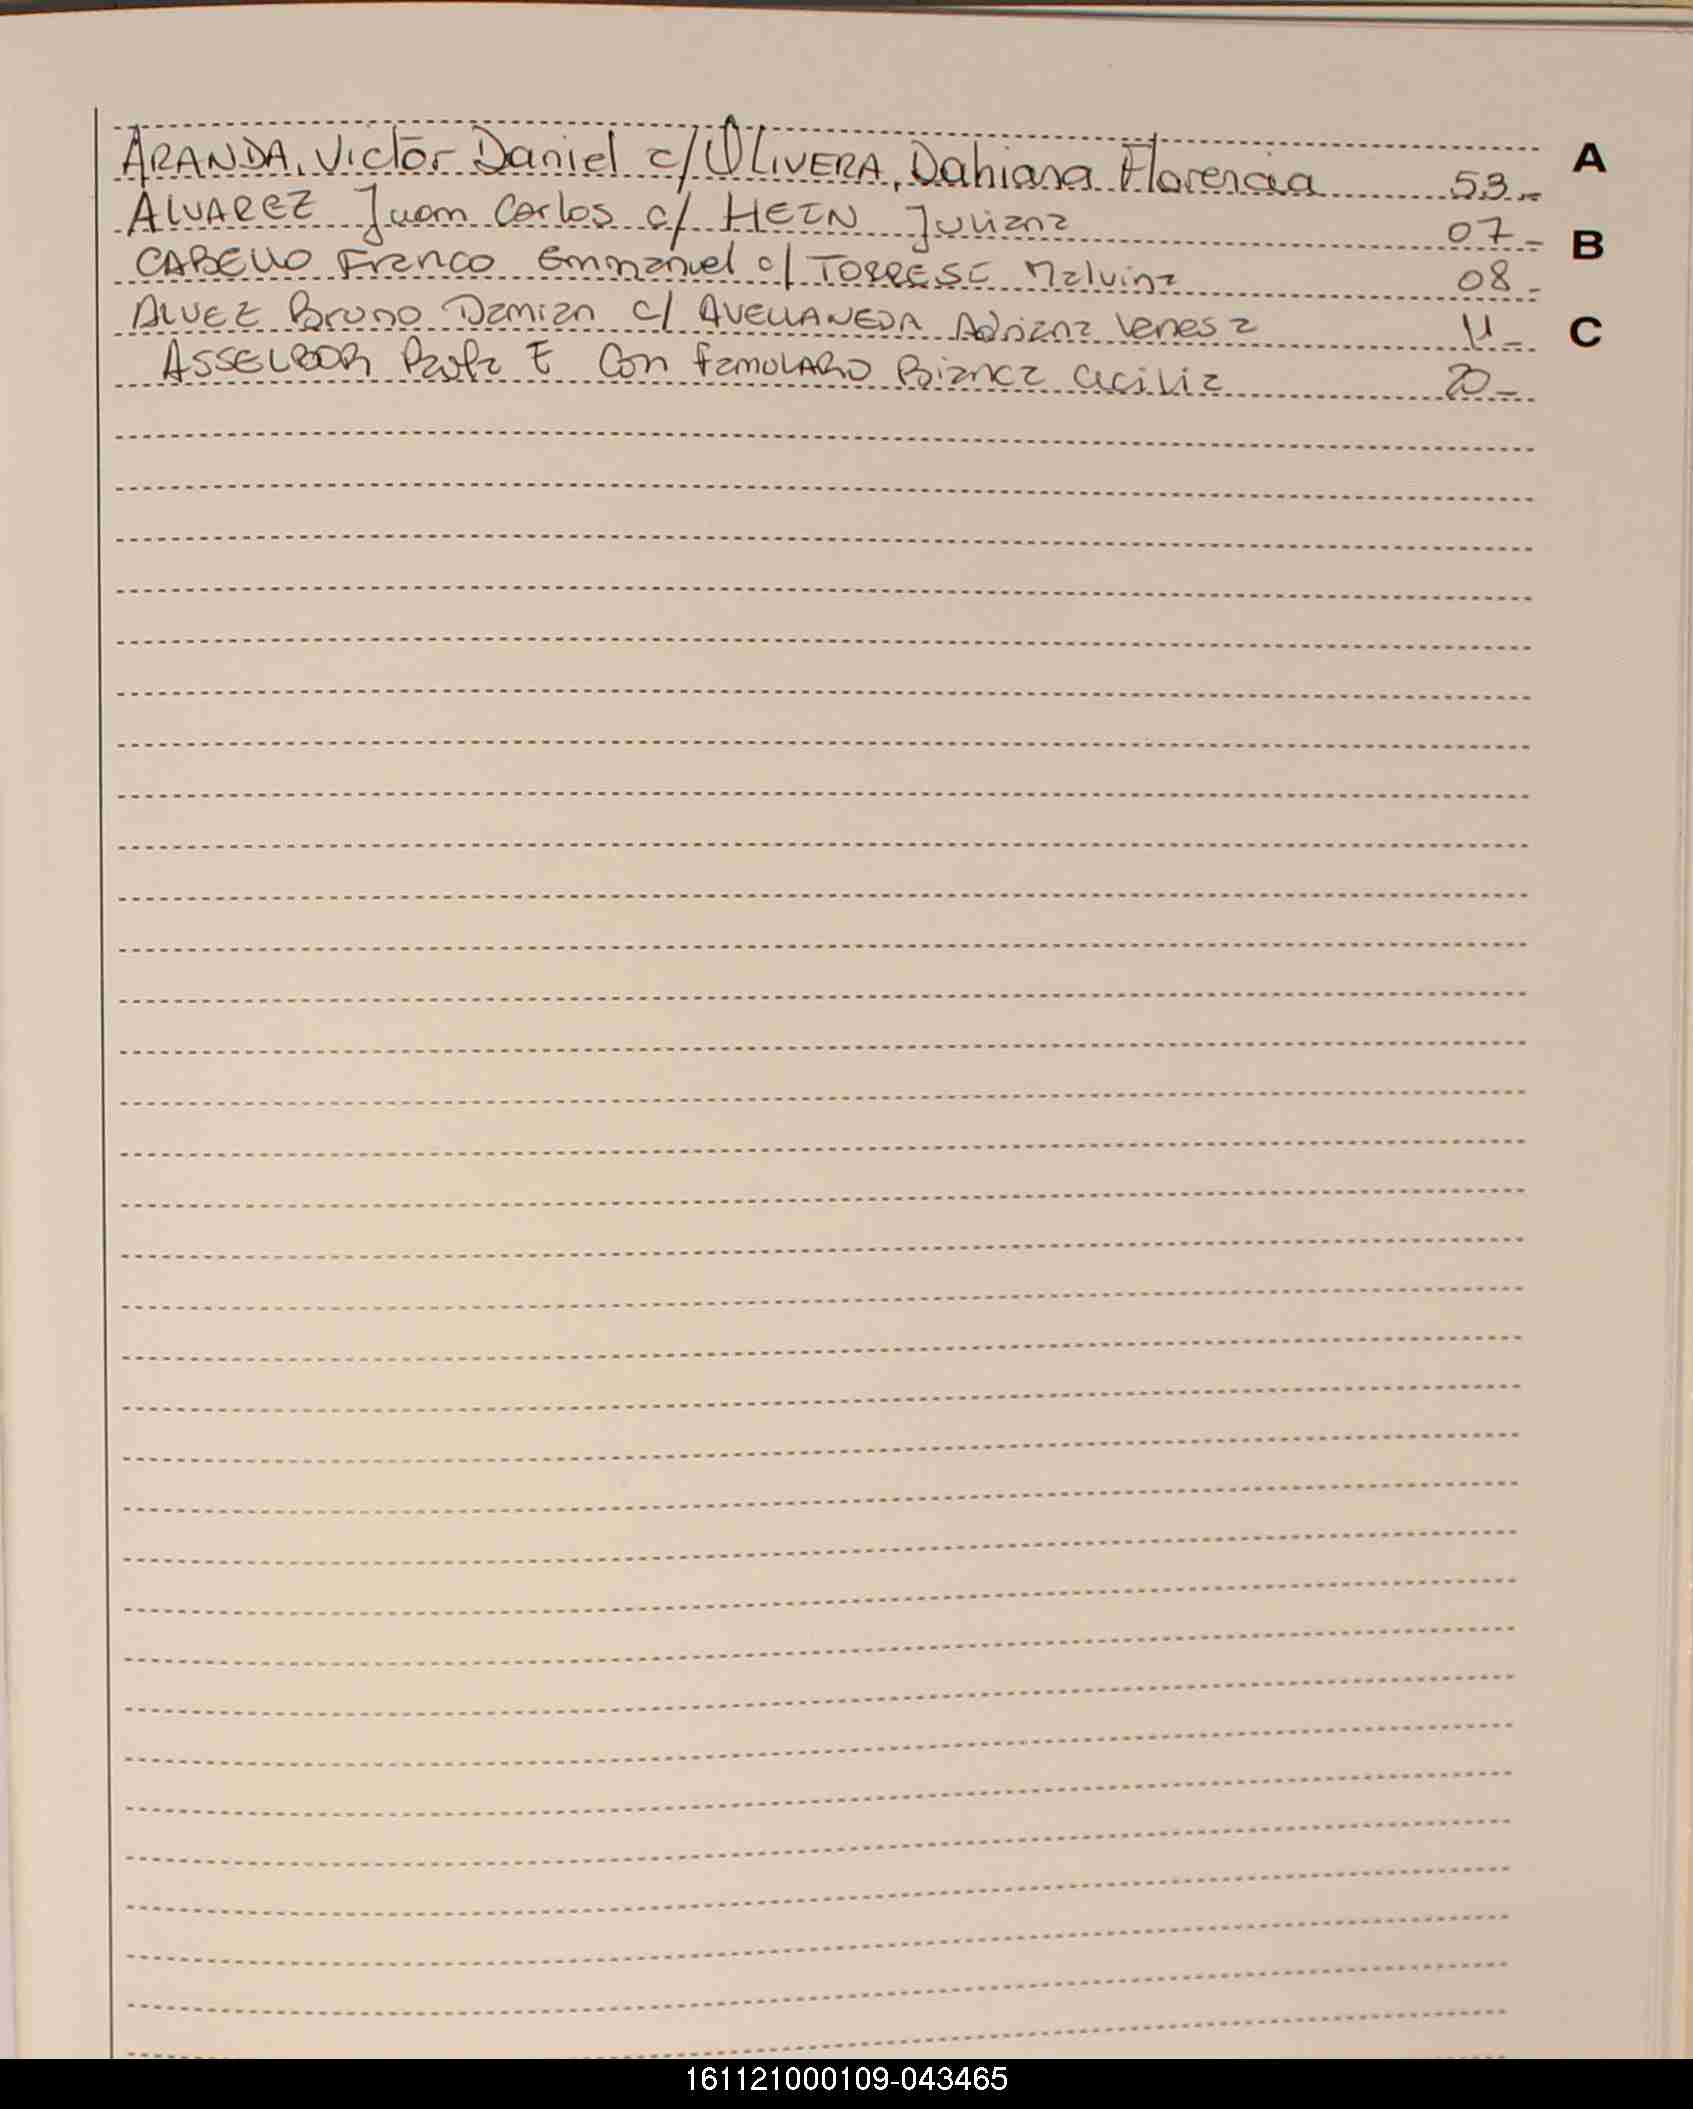 ARANDA, Victor Daniel c/ OLIVERA, Dahiana Florencia 53.- A
ALVAREZ Juan Carlos c/ HEIN Juliana 07.-
B
CABELLO Franco Emmanuel c/ TORRES Malvina 08.-
ALVEZ Bruno Damian c/ AVELLANEDA Adriana Vanesa 11.- C
ASSELBOR E Con FAMOLARO Bianca Cecilia 20.-
161121000109-043465